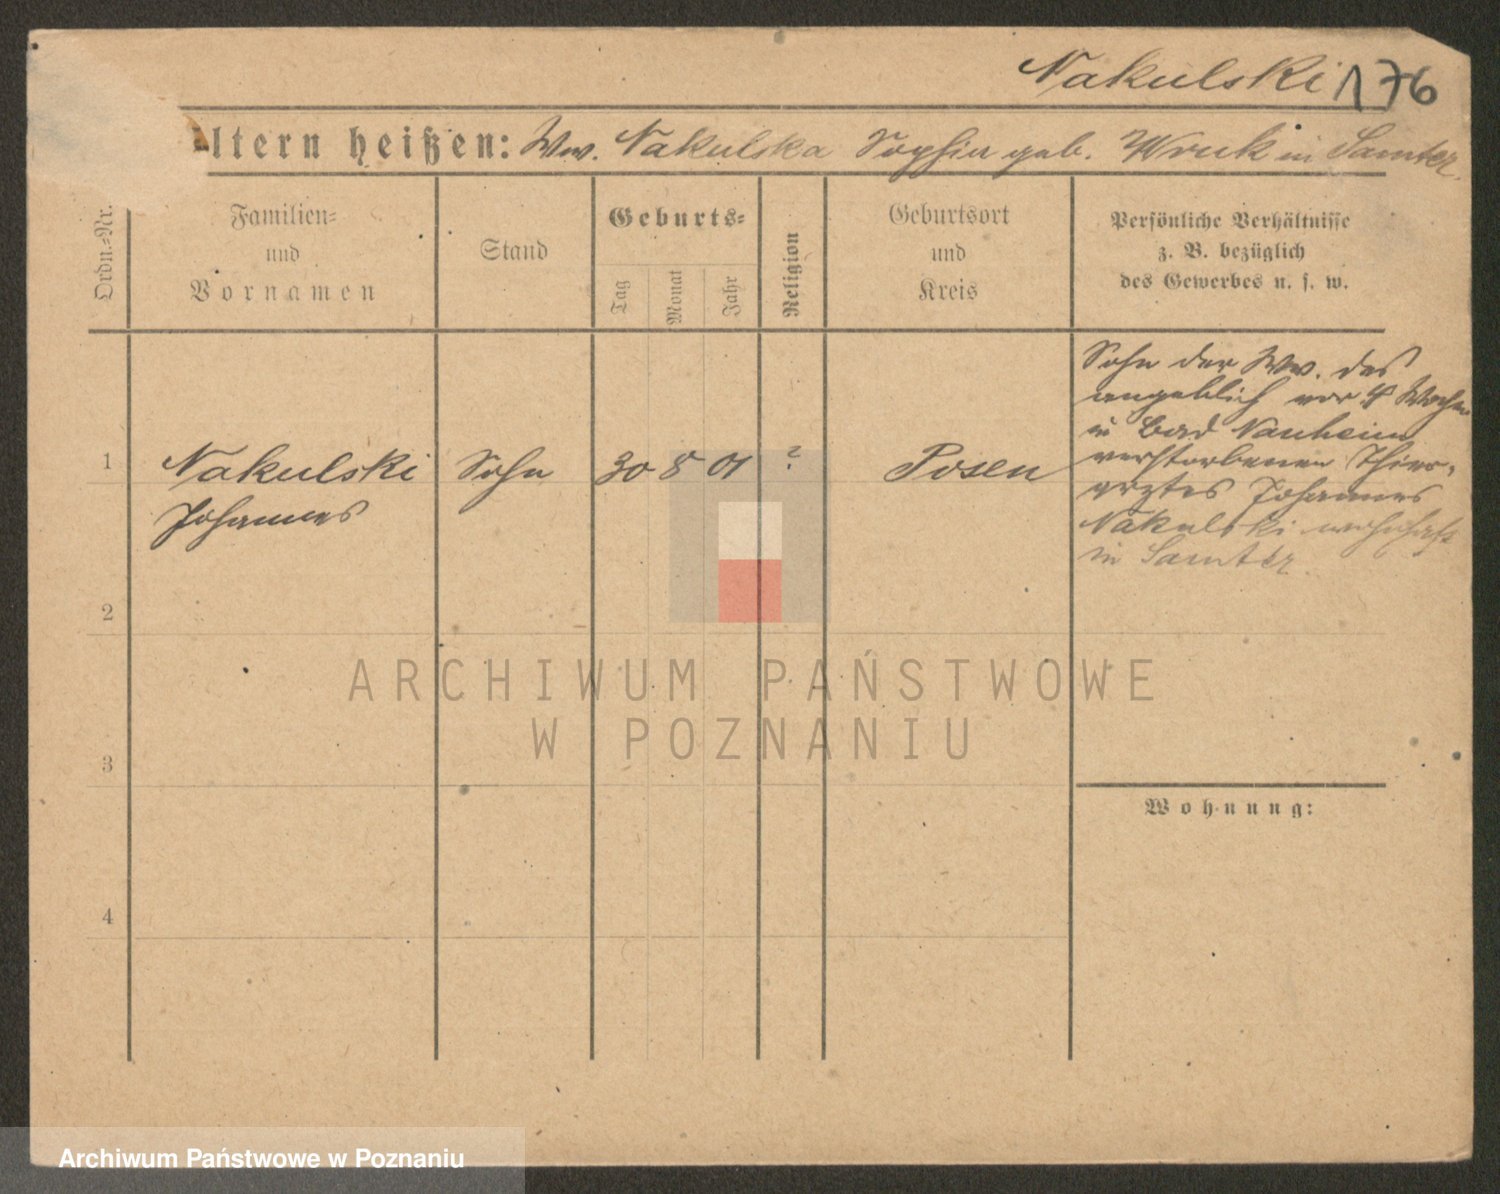 Nakulski 176
ltern heißen: Ww. Nakulska Sophia geb. Wruk in Samter.
Ordn.=Nr.
Familien=
und
Vornamen
Stand
Geburts=
Tag
Monat
Jahr
Religion
Geburtsort
und
Kreis
Persönliche Verhältnisse
z. B. bezüglich
des Gewerbes u. s. w.
1
Nakulski
Johannes
Sohn
30 8 01
?
Posen
Sohn der Ww. des
angeblich vor 4 Wochen
in Bad Nauheim
verstorbenen Thier-
arztes Johannes
Nakulski wohnhaft
in Samter
2
3
4
Wohnung:
ARCHIWUM PAŃSTWOWE
W POZNANIU
Archiwum Państwowe w Poznaniu